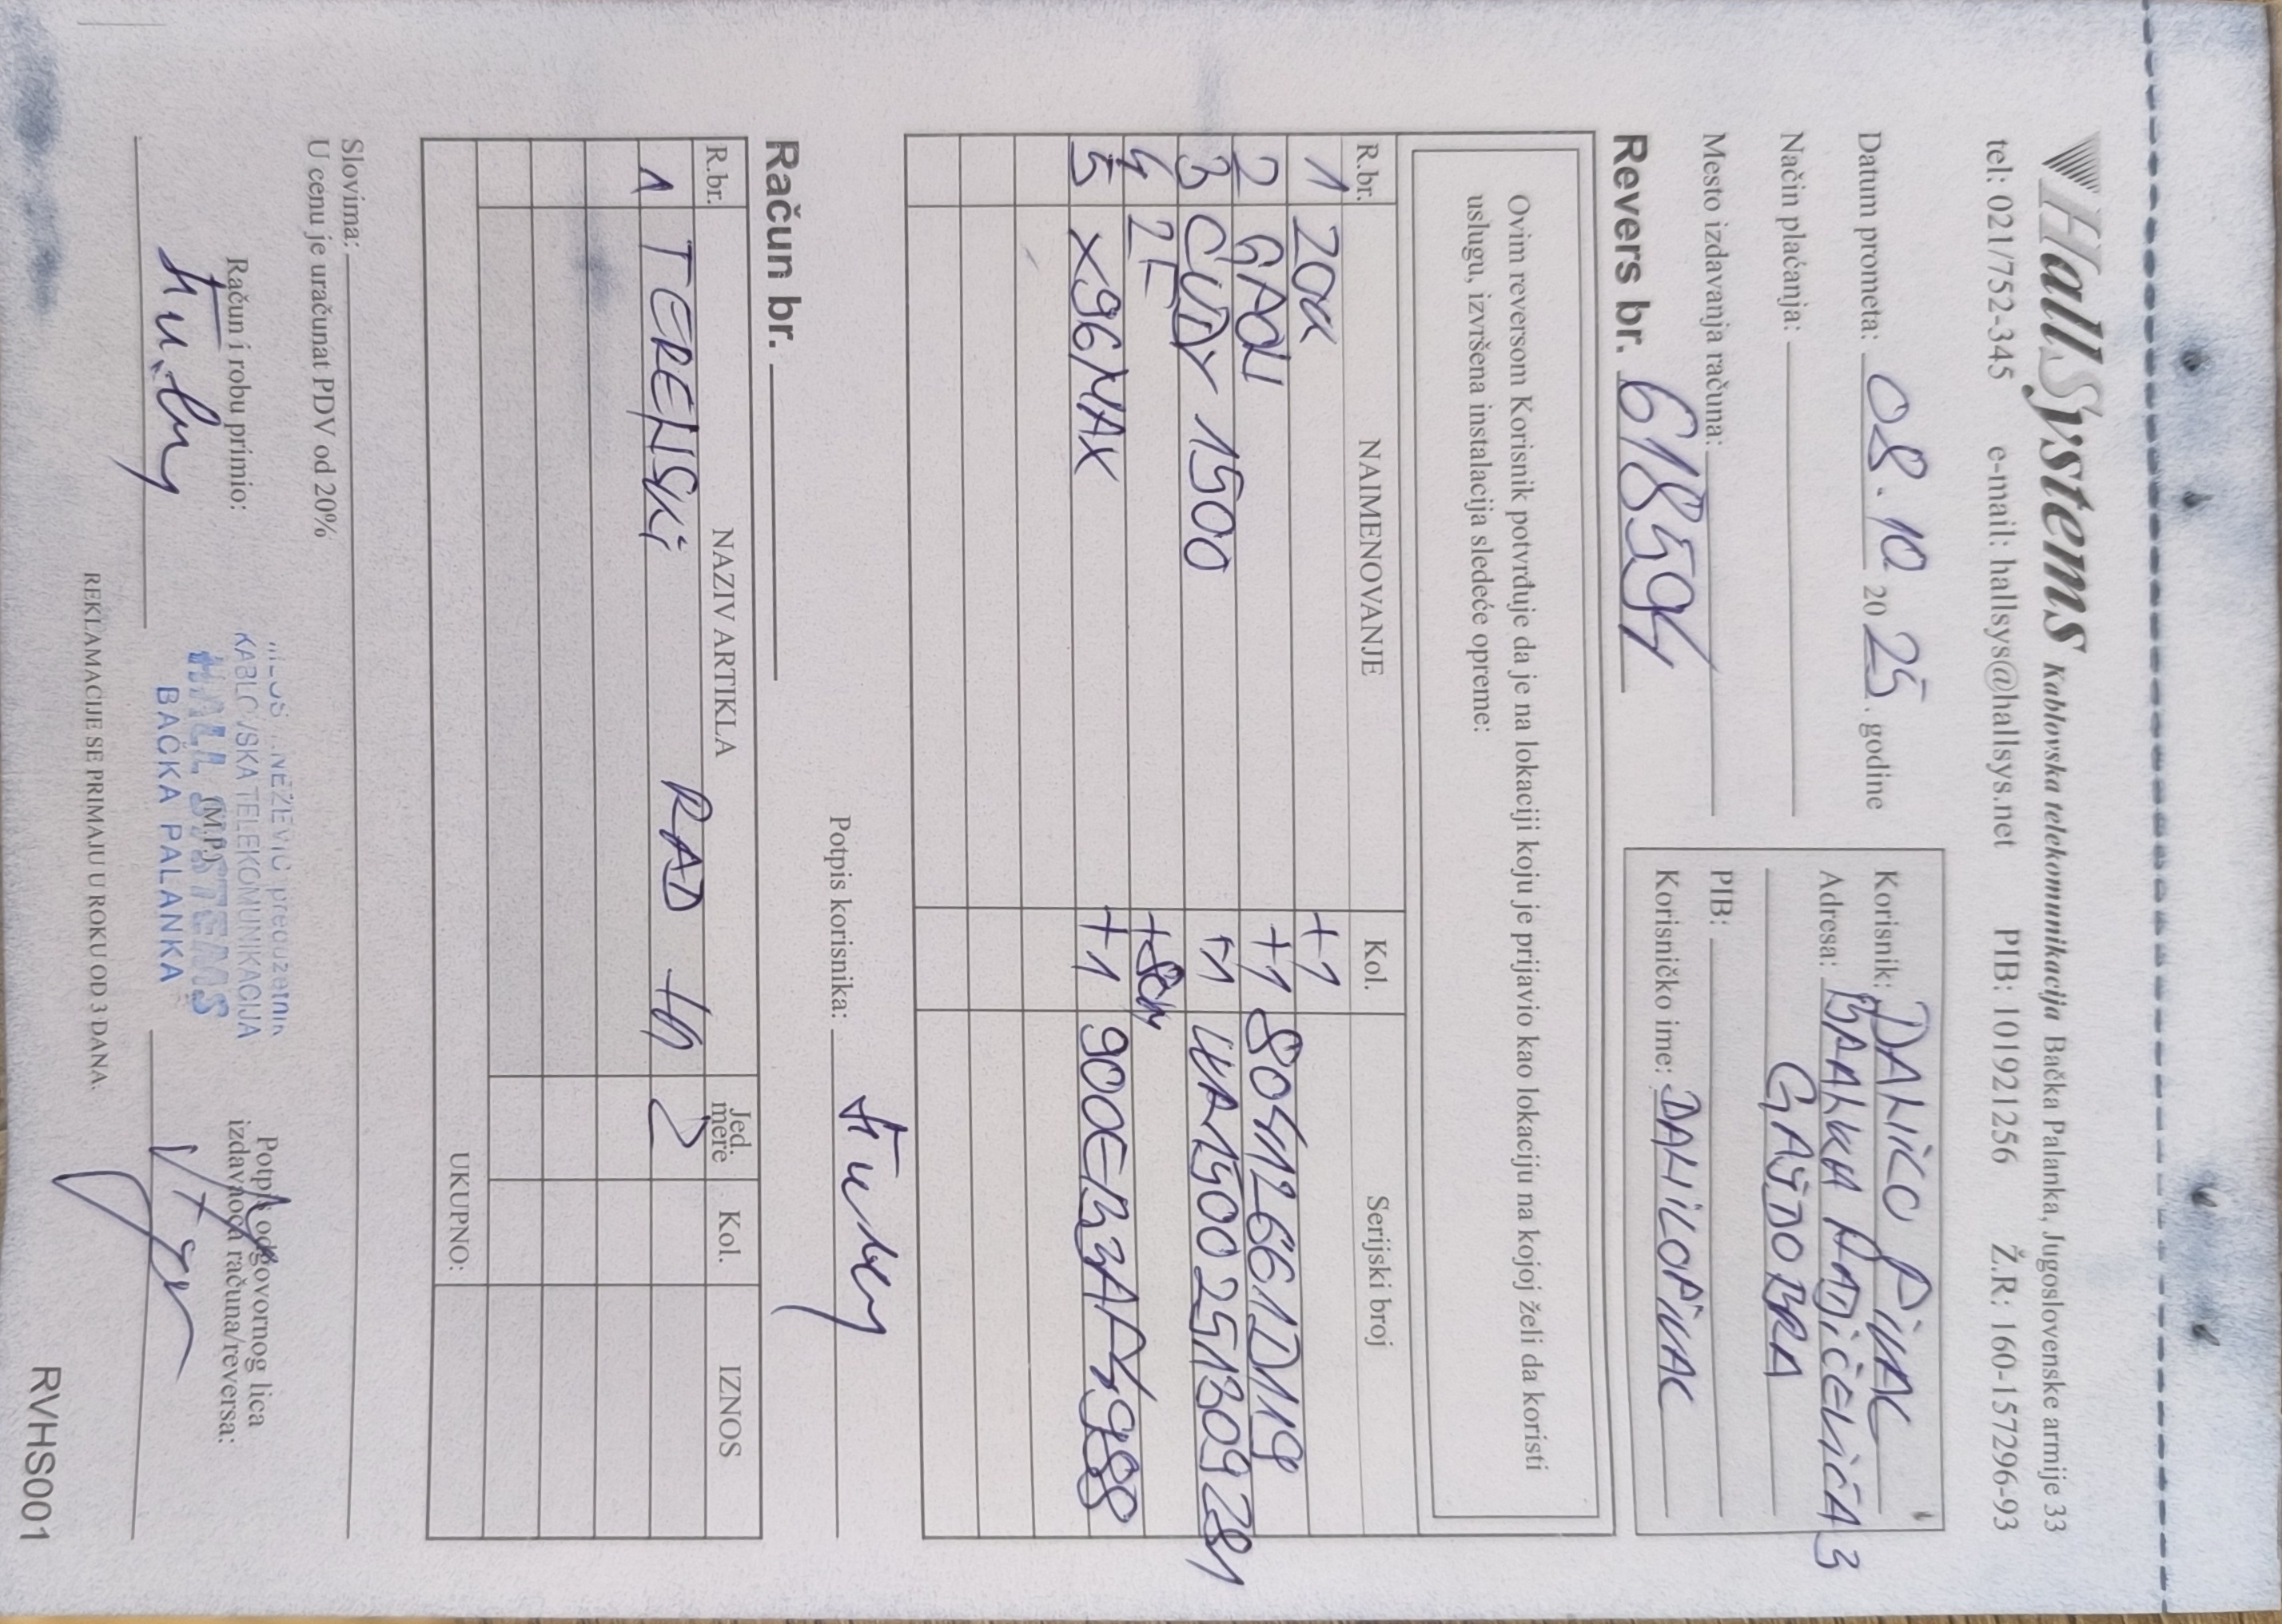 HallSystems Kablovska telekomunikacija Bačka Palanka, Jugoslovenske armije 33
tel: 021/752-345 e-mail: hallsys@hallsys.net PIB: 101921256 Ž.R: 160-157296-93
Datum prometa: 08.10 2025. godine
Način plaćanja:
Mesto izdavanja računa:
Korisnik: DANILO PIVAC
Adresa: BRANKA RADIČEVIĆA 3
GAJDOBRA
PIB:
Korisničko ime: DANILOPIVAC
Revers br. 618594
Ovim reversom Korisnik potvrđuje da je na lokaciji koju je prijavio kao lokaciju na kojoj želi da koristi
uslugu, izvršena instalacija sledeće opreme:
R.br. NAIMENOVANJE Kol. Serijski broj
1 20a +1
2 GPON +1 80412661D119
3 CUDY 1500 +1 WR1500251309281
4 2F
5 X96MAX +1 900EB3AF4988
Potpis korisnika:
Račun br.
R.br. NAZIV ARTIKLA Jed. mere Kol. IZNOS
1 TERENSKI RAD
UKUPNO:
Slovima:
U cenu je uračunat PDV od 20%
Račun i robu primio:
preduzetnik
KABLOVSKA TELEKOMUNIKACIJA
HALL SYSTEMS
(M.P.)
BAČKA PALANKA
Potpis odgovornog lica
izdavaoca računa/reversa:
REKLAMACIJE SE PRIMAJU U ROKU OD 3 DANA.
RVHS001